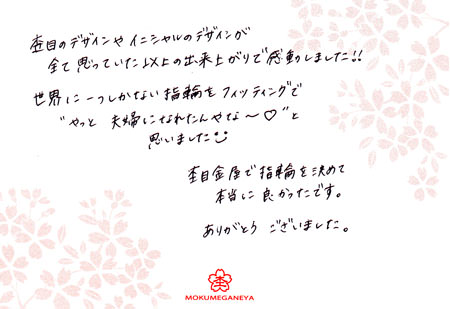 杢目のデザインや イニシャルのデザインが
全て思っていた以上の出来上がりで感動しました!!
世界に一つしかない指輪をフィッティングで
"やっと 夫婦になれたんやな〜♡"と
思いました
杢目金屋で指輪を決めて
本当に良かったです。
ありがとう ございました。
杢
MOKUMEGANEYA